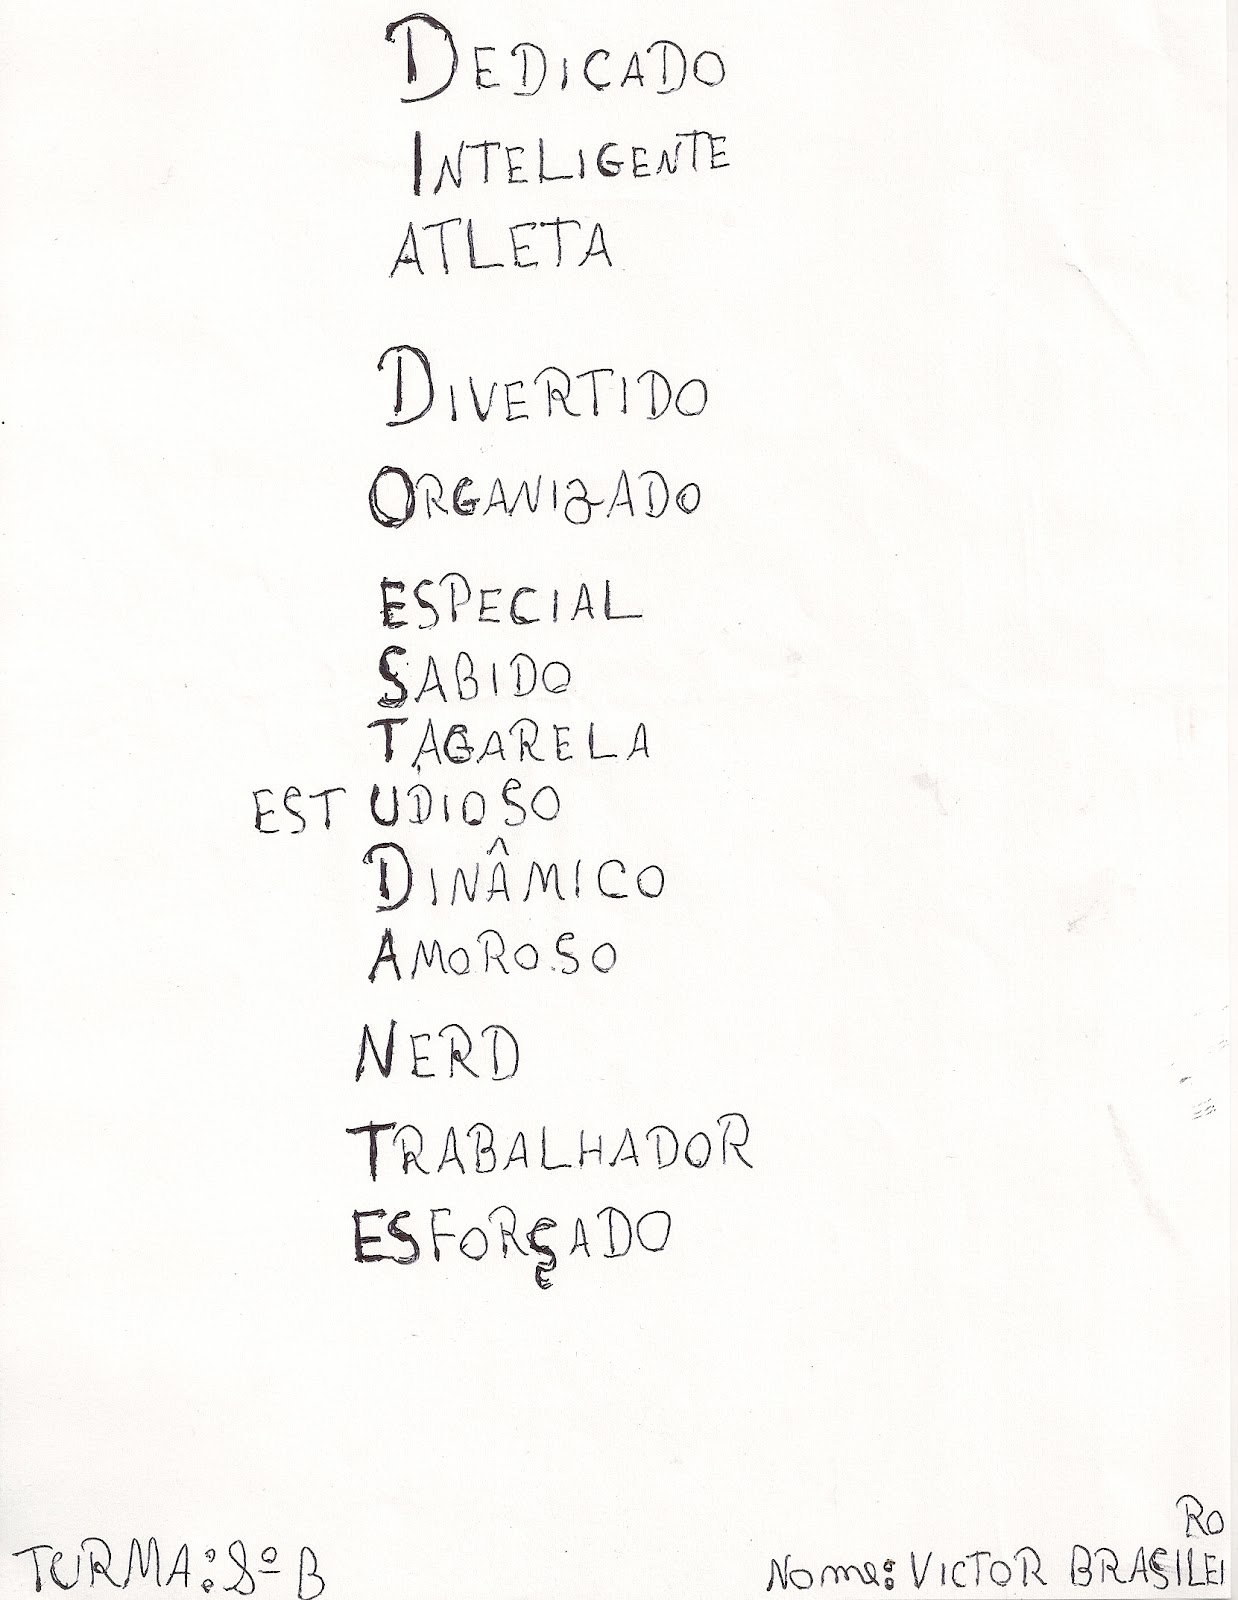 DEDICADO
INTELIGENTE
ATLETA
DIVERTIDO
ORGANIZADO
ESPECIAL
SABIDO
TAGARELA
ESTUDIOSO
DINÂMICO
AMOROSO
NERD
TRABALHADOR
ESFORÇADO
RO
TURMA: 8º B Nome: VICTOR BRASILEI